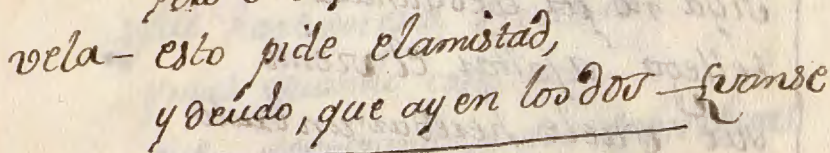 vela - esto pide elamistad,
y deúdo, que ay en los dos - {vanse